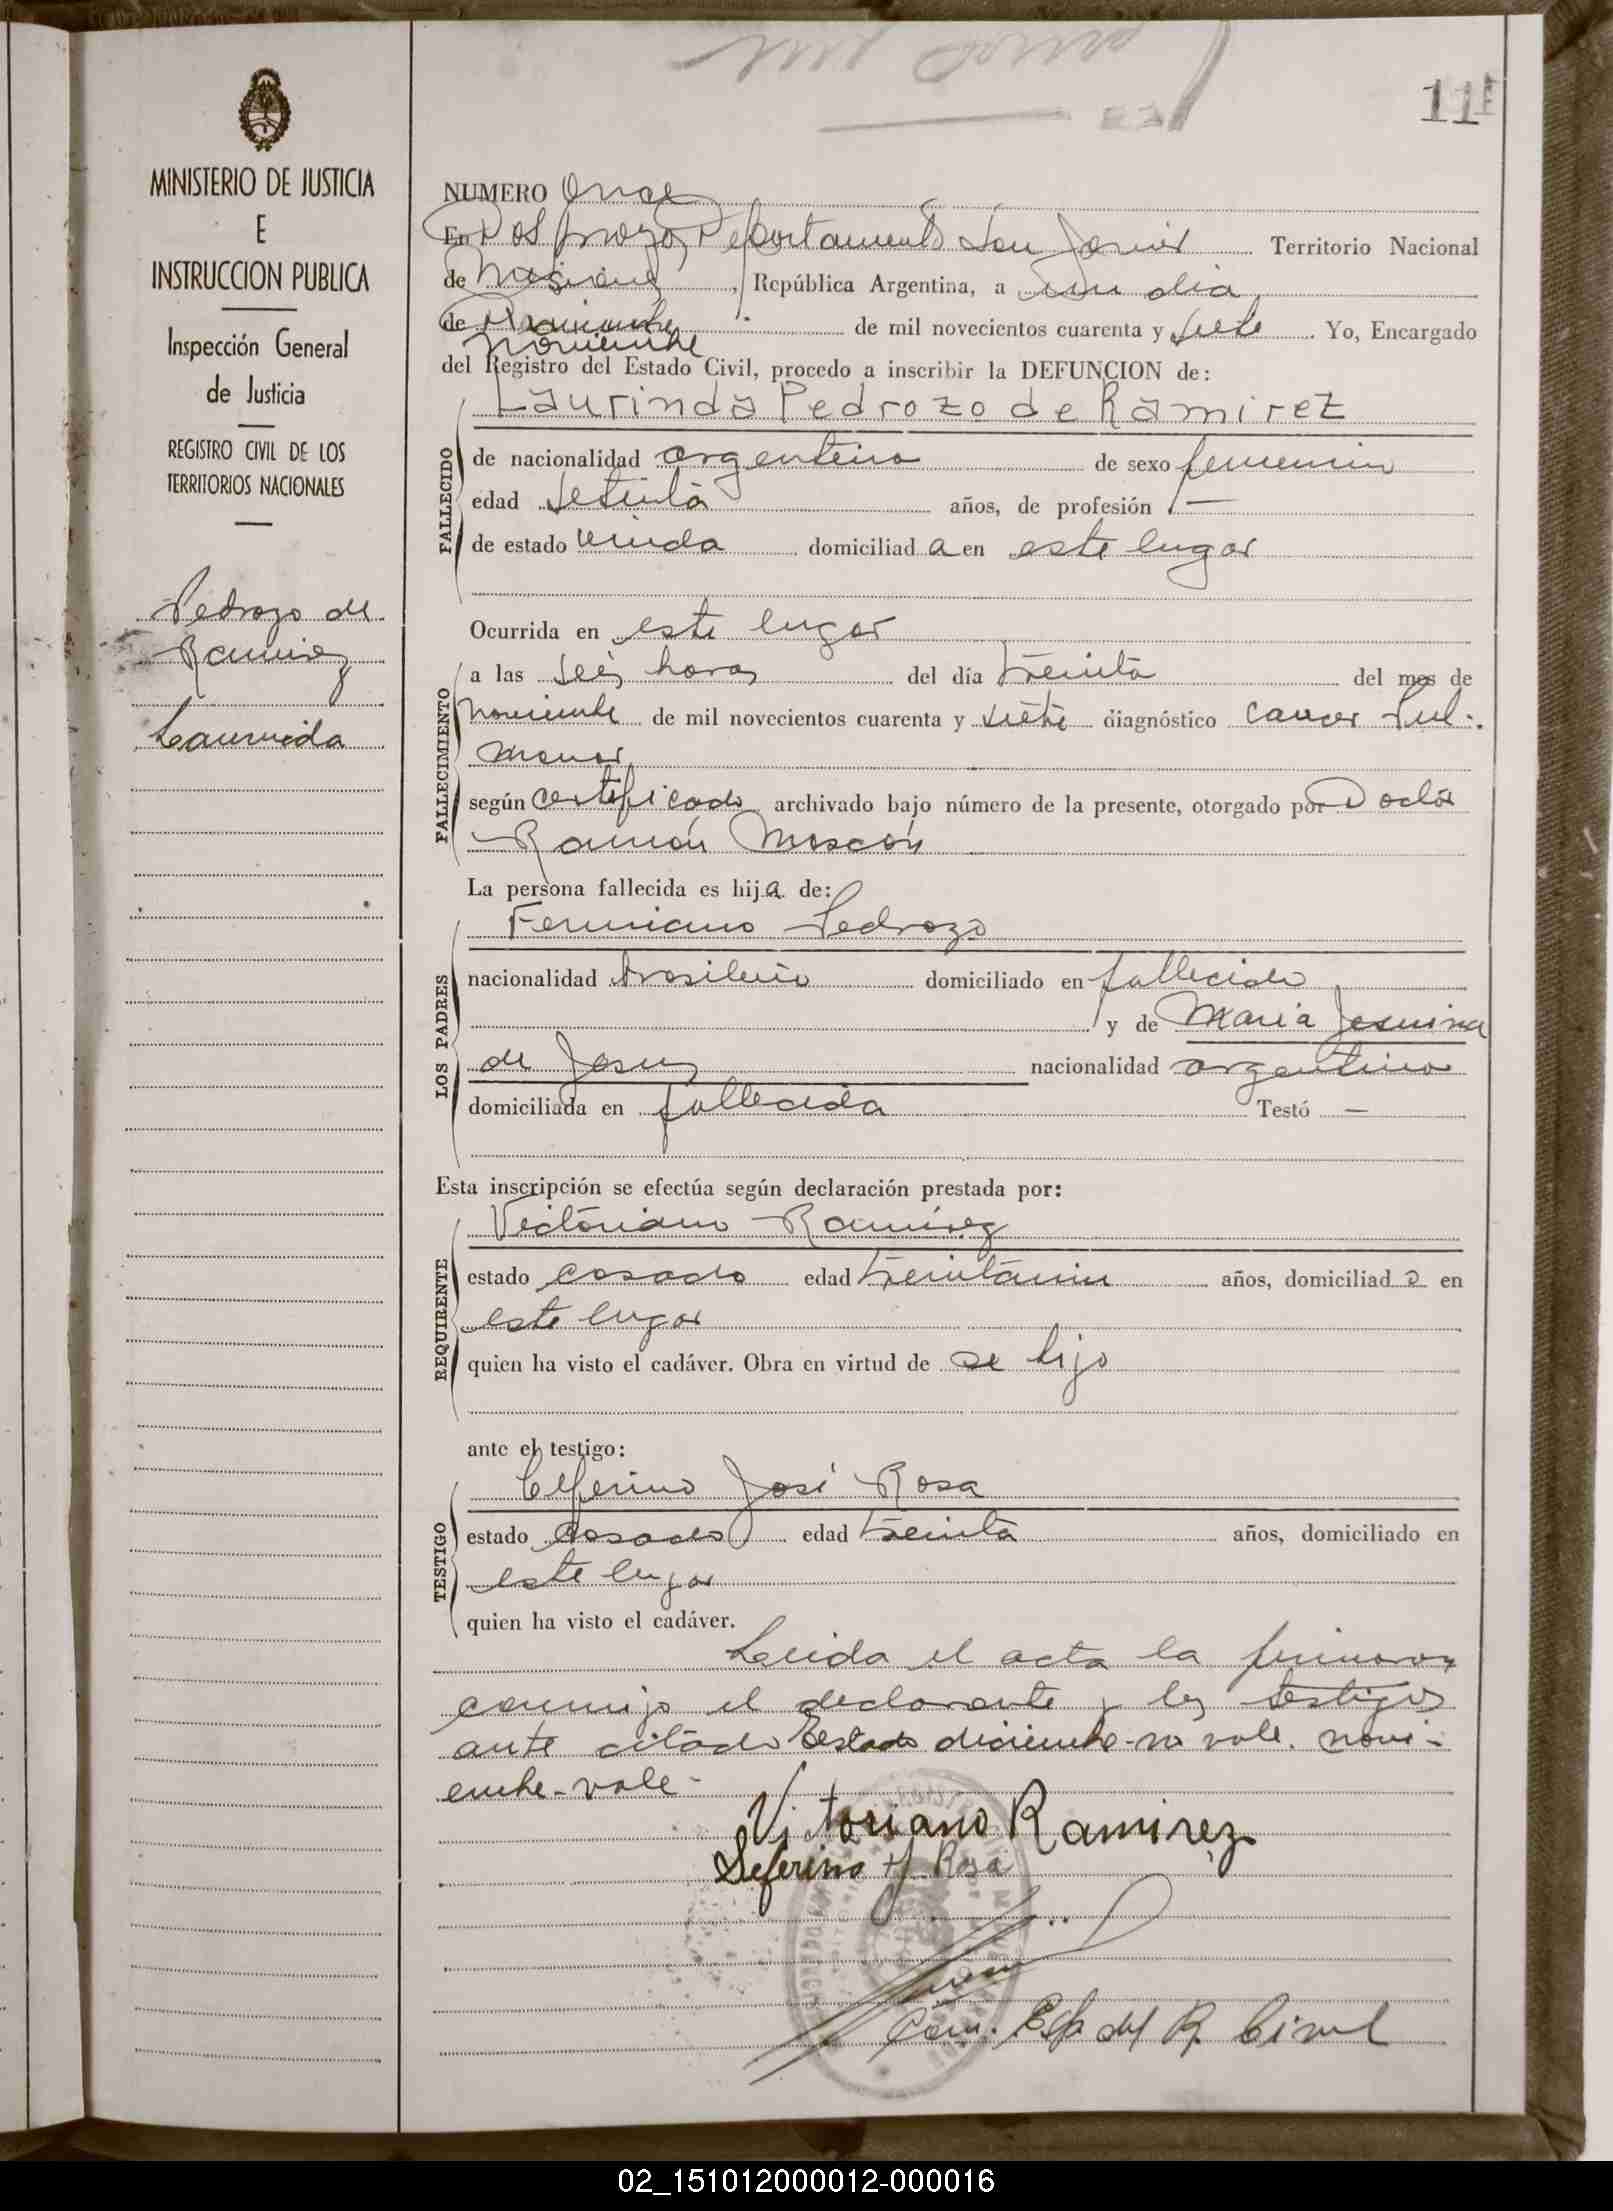 11
MINISTERIO DE JUSTICIA
E
INSTRUCCION PUBLICA
Inspección General
de Justicia
REGISTRO CIVIL DE LOS
TERRITORIOS NACIONALES
Pedrozo de
Ramirez
Laurinda
NUMERO Once
En Dos Arroyos, Departamento San Javier Territorio Nacional
de Misiones, República Argentina, a un dia
de de mil novecientos cuarenta y siete. Yo, Encargado
noviembre
del Registro del Estado Civil, procedo a inscribir la DEFUNCION de:
Laurinda Pedrozo de Ramirez
FALLECIDO
de nacionalidad argentina de sexo femenino
edad setenta años, de profesión —
de estado viuda domiciliad a en este lugar
Ocurrida en este lugar
FALLECIMIENTO
a las seis horas del día treinta del mes de
noviembre de mil novecientos cuarenta y siete diagnóstico cancer Pul-
monar
según certificado archivado bajo número de la presente, otorgado por Doctor
Ramón Moscón
La persona fallecida es hija de:
LOS PADRES
Pedrozo
nacionalidad brasileño domiciliado en fallecido
y de Maria Jesuina
de Jesus nacionalidad argentina
domiciliada en fallecida Testó —
Esta inscripción se efectúa según declaración prestada por:
REQUIRENTE
Victoriano Ramirez
estado casado edad años, domiciliad o en
este lugar
quien ha visto el cadáver. Obra en virtud de se hijo
ante el testigo:
TESTIGO
Ceferino José Rosa
estado casado edad treinta años, domiciliado en
este lugar
quien ha visto el cadáver.
Leida el acta la firmaron
conmigo el declarante y los testigos
ante citado Testado diciembre-no vale. novi-
embre-vale-
Victoriano Ramirez
Seferino J. Rosa
del R. Civil
02_151012000012-000016